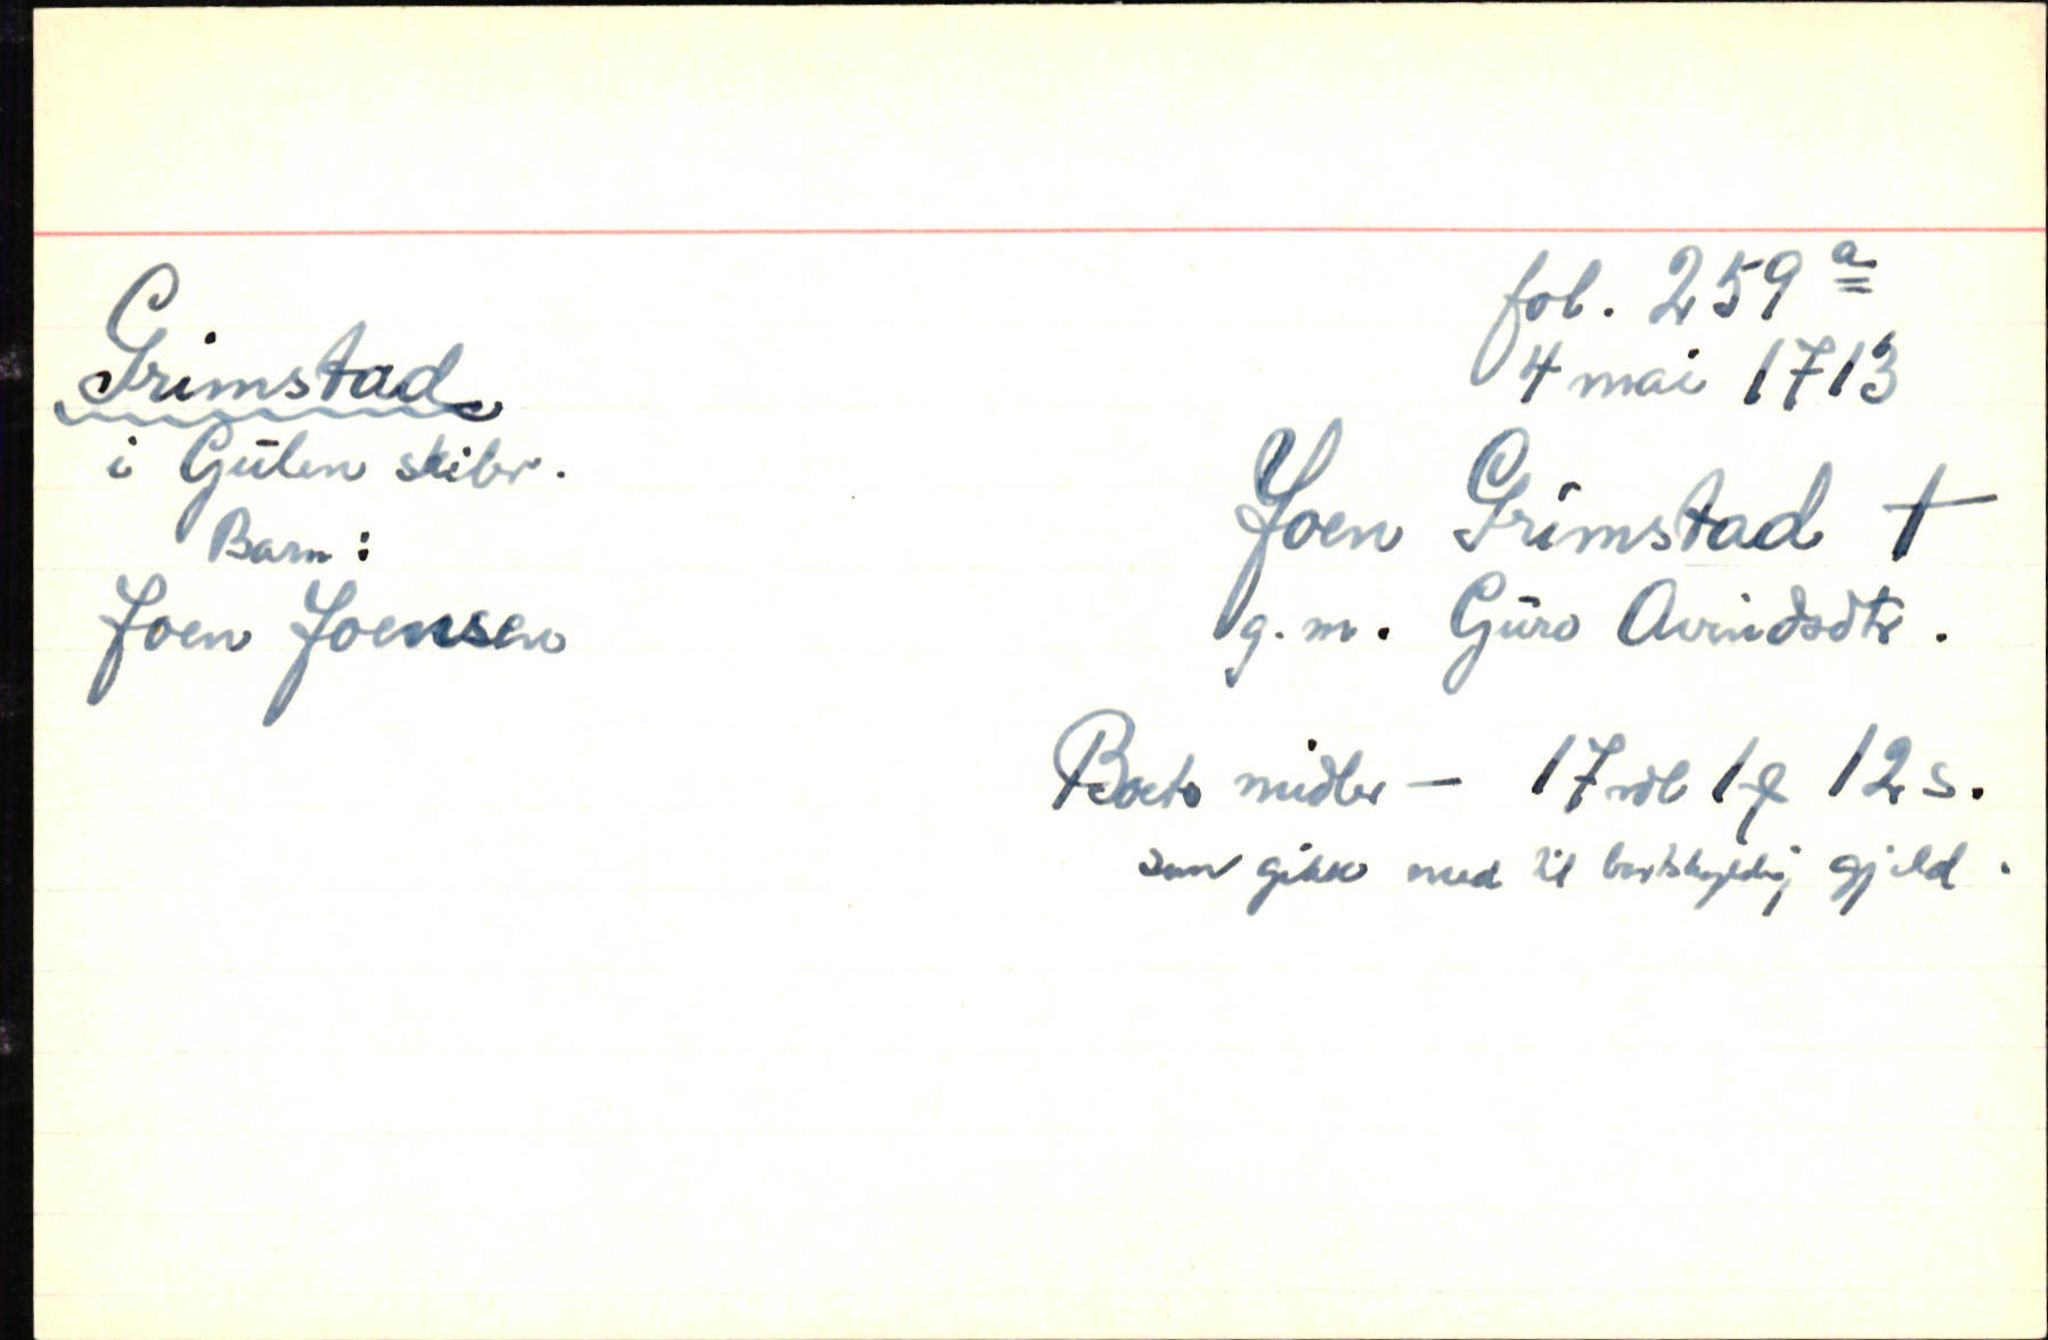 Grimstad
i Gūlen skibr.
Barn:
Joen Joensen
fol. 259 a
4 mai 1713
Joen Grimstad †
g.m. Gūro Avindsdtr.
Boets midler — 17 rdl 1 12 s.
som gikk med til bortskyldig gjeld.